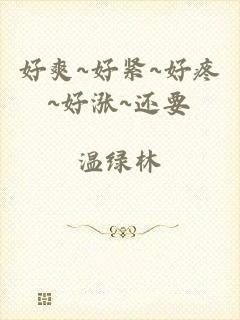 好爽~好紧~好疼
~好涨~还要
温绿林